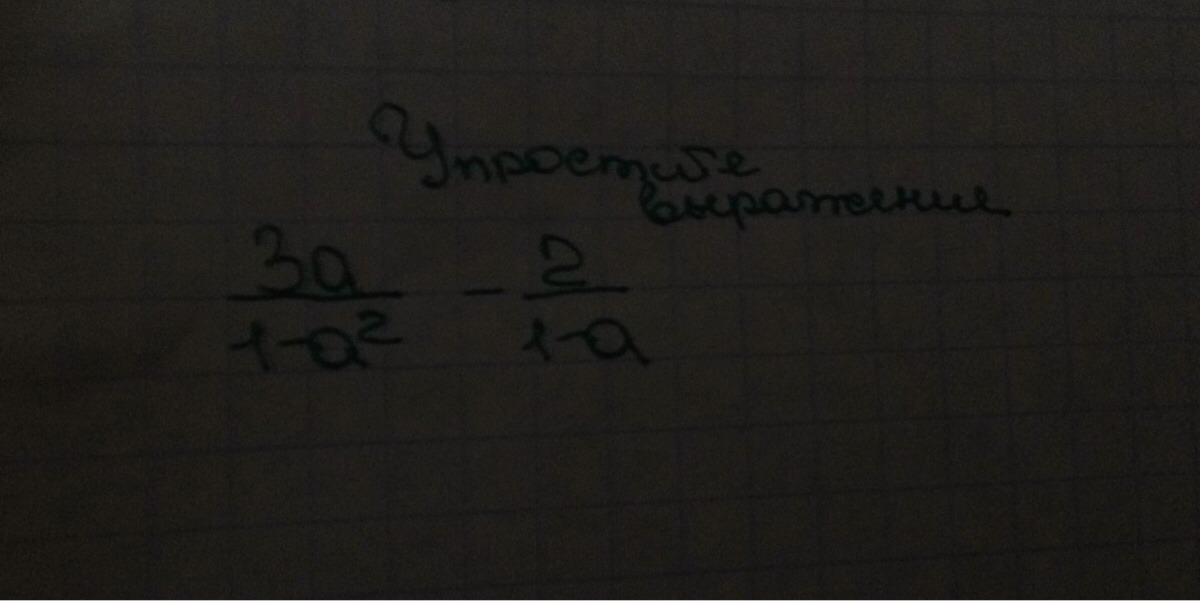 Упростите
выражение
3a/(1-a²) - 2/(1-a)